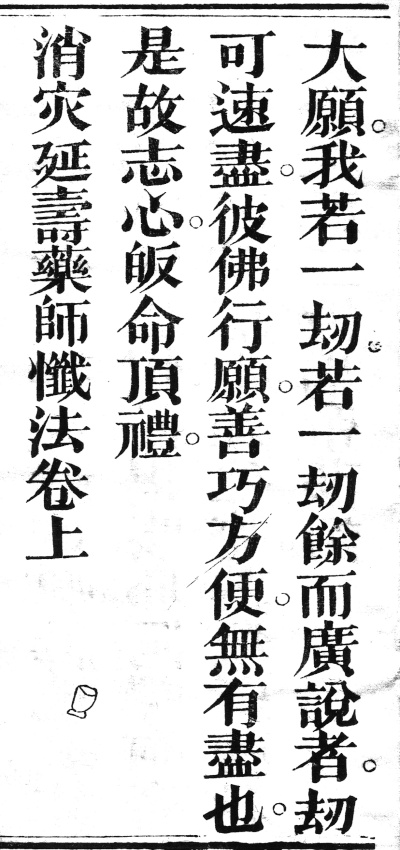 大願。我若一刼。若一刼餘而廣說者。刼
可速盡。彼佛行願。善巧方便。無有盡也。
是故志心。皈命頂禮。
消灾延壽藥師懺法卷上